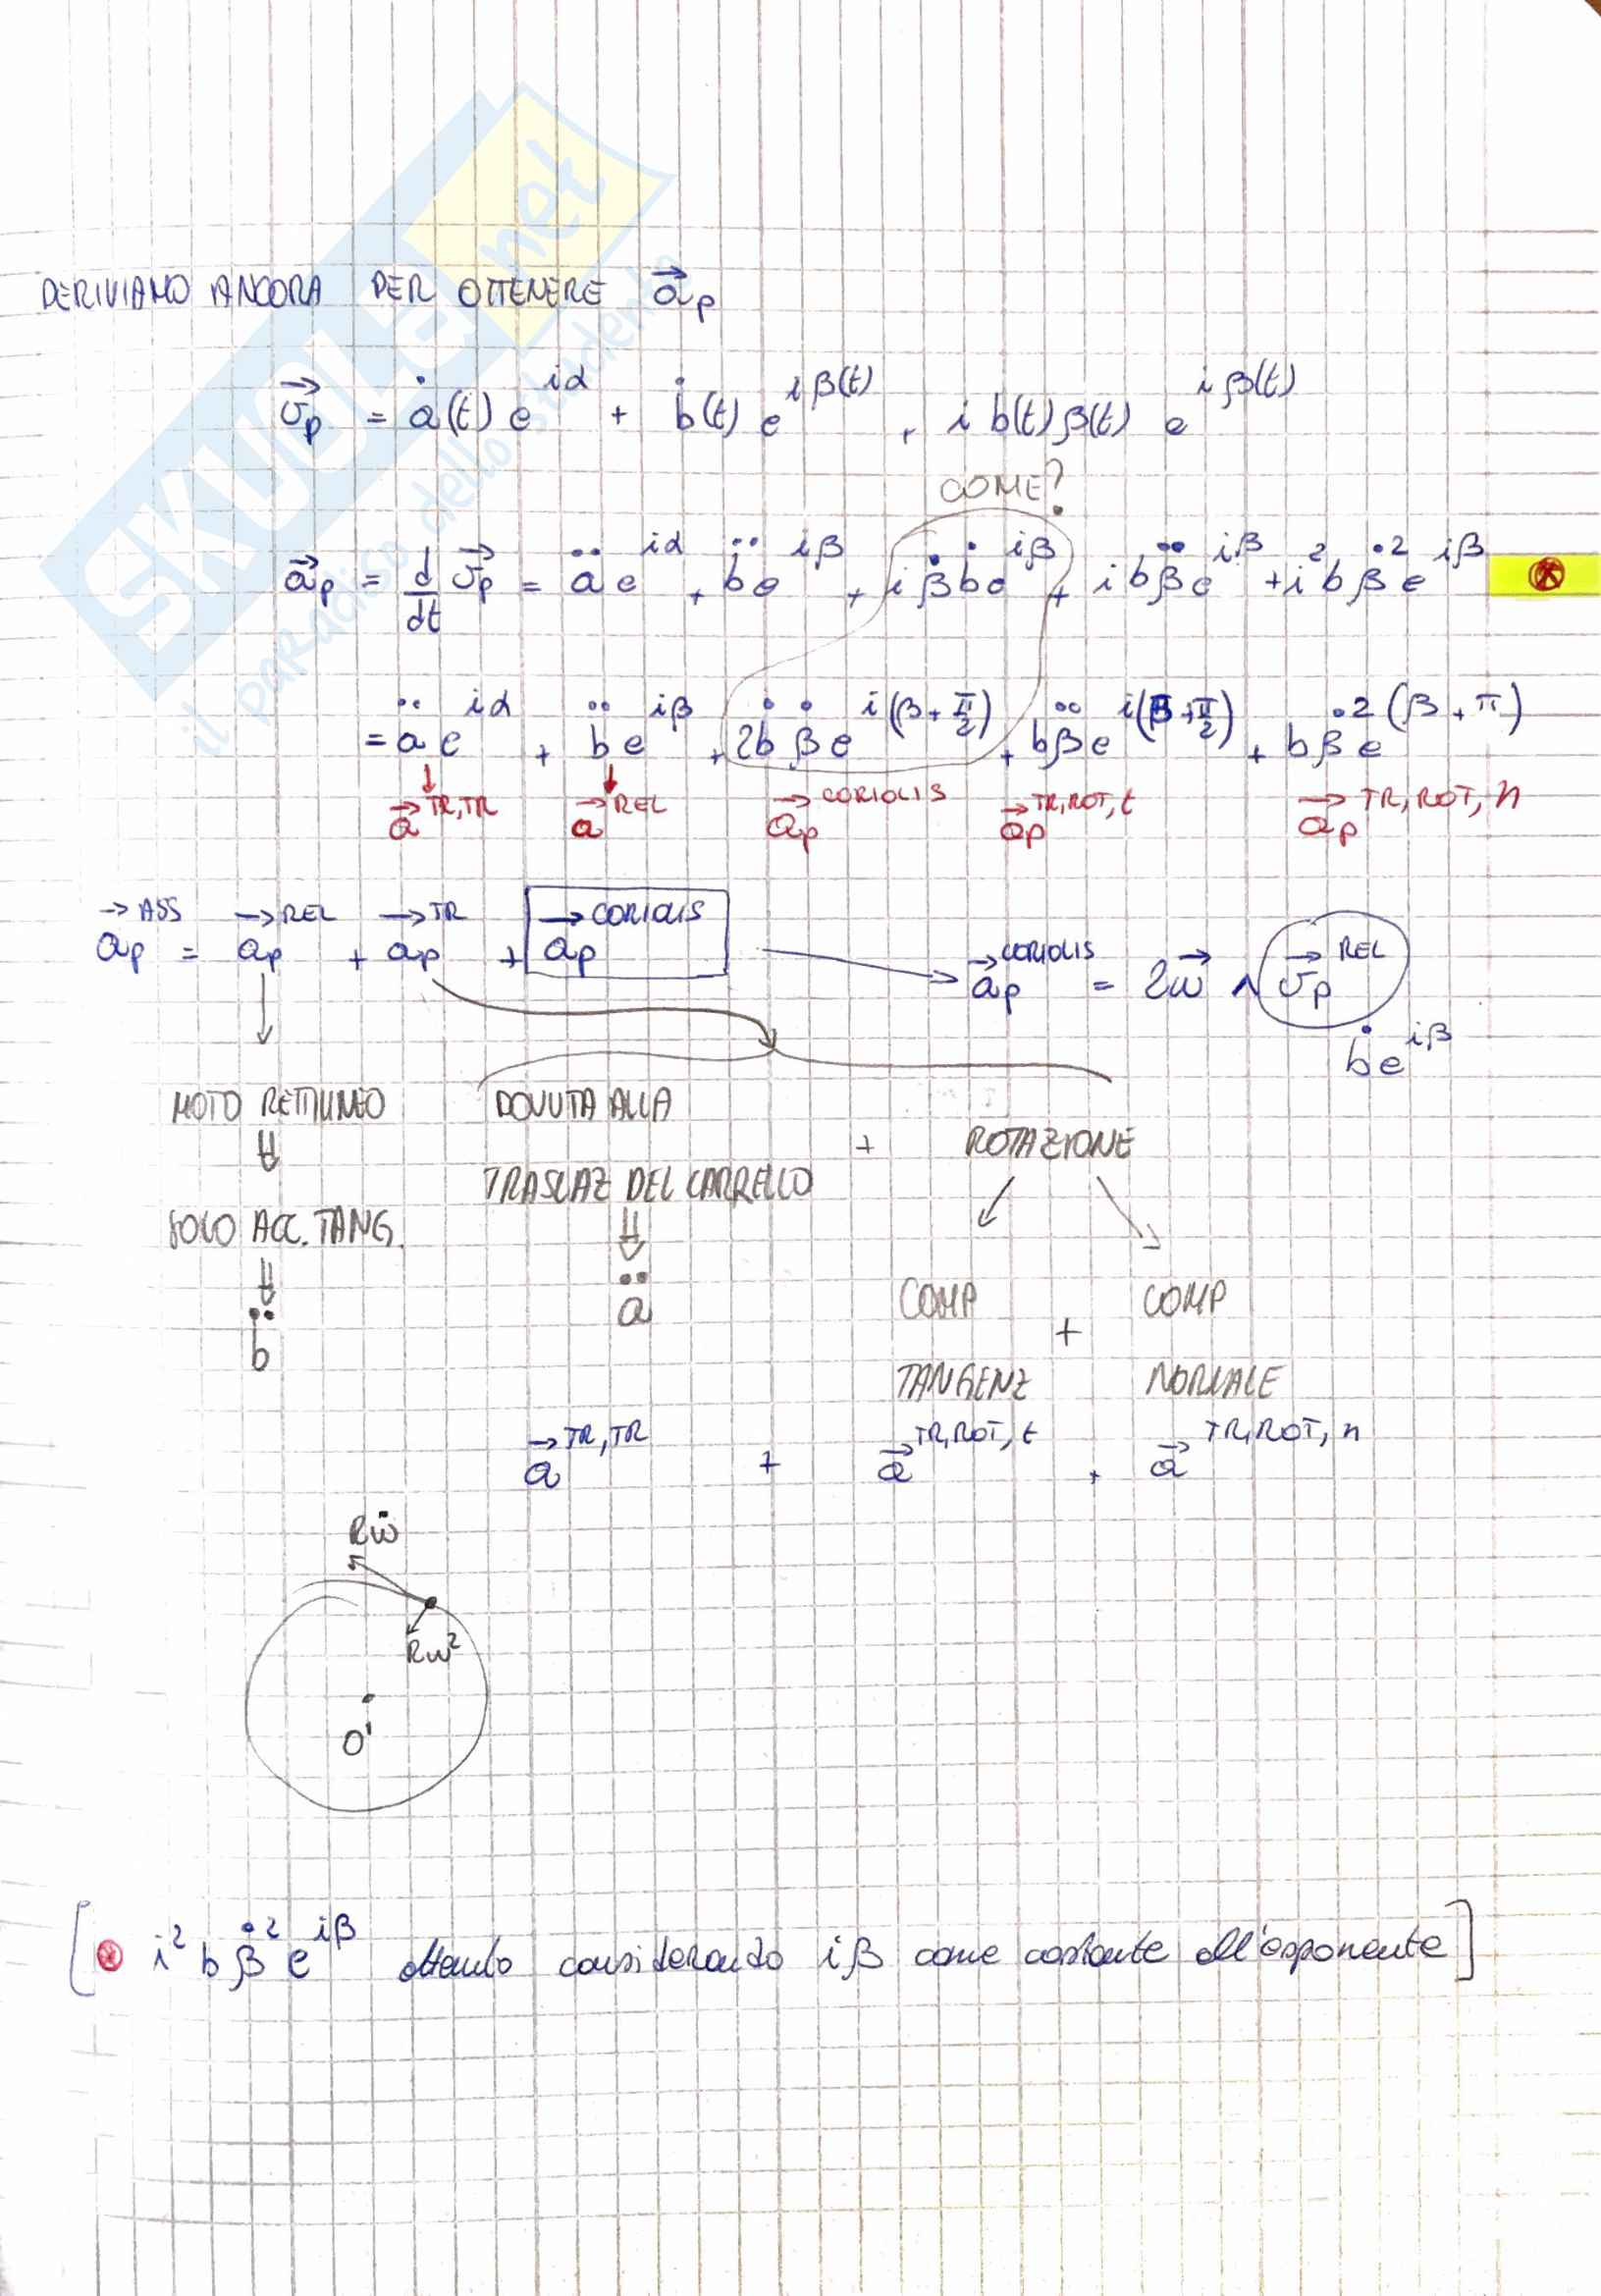 SKUOLA.net
il paradiso dello studente
DERIVIAMO ANCORA PER OTTENERE a⃗ₚ
v⃗ₚ = ȧ(t) e^{iα} + ḃ(t) e^{iβ(t)} + i b(t) β(t) e^{iβ(t)}
COME?
a⃗ₚ = d/dt v⃗ₚ = ä e^{iα} + b̈ e^{iβ} + i β̇ ḃ e^{iβ} + i b β̈ e^{iβ} + i² b β̇² e^{iβ} ⊗
= ä e^{iα} + b̈ e^{iβ} + 2ḃ β̇ e^{i(β+π/2)} + b β̈ e^{i(β+π/2)} + b β̇² e^{(β+π)}
a⃗^{TR,TR} a⃗^{REL} a⃗ₚ^{CORIOLIS} a⃗ₚ^{TR,ROT,t} a⃗ₚ^{TR,ROT,n}
a⃗ₚ^{ASS} = a⃗ₚ^{REL} + a⃗ₚ^{TR} + a⃗ₚ^{CORIOLIS} → a⃗ₚ^{CORIOLIS} = 2ω⃗ ∧ v⃗ₚ^{REL}
ḃ e^{iβ}
MOTO RETTILINEO DOVUTA ALLA
+ ROTAZIONE
TRASLAZ DEL CARRELLO
SOLO ACC. TANG.
b̈ ä COMP + COMP
TANGENZ NORMALE
a⃗^{TR,TR} + a⃗^{TR,ROT,t} + a⃗^{TR,ROT,n}
Rω̇
Rω²
O'
[⊗ i² b β̇² e^{iβ} ottenuto considerando iβ come costante all'esponente]